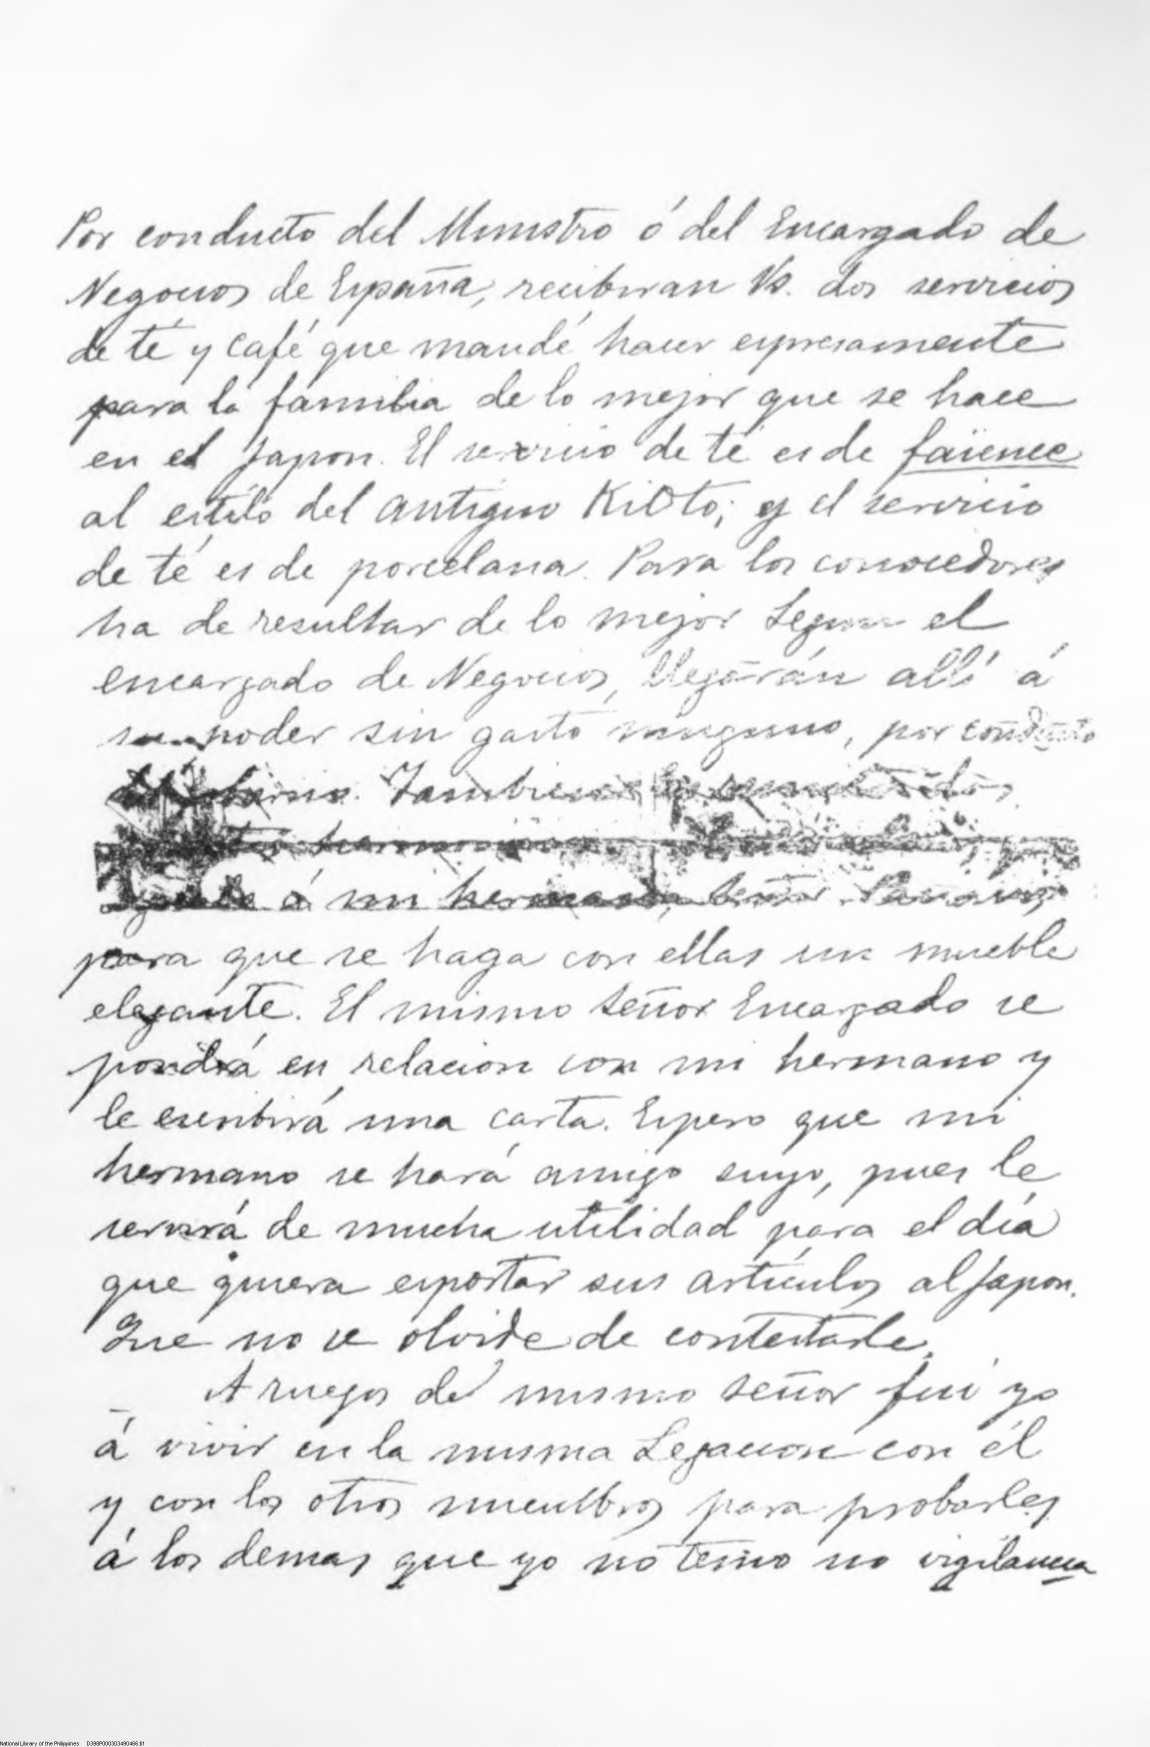 Por conducto del Ministro ó del Encargado de
Negocios de España, recibiran Vs. dos servicios
de té y café que mandé hacer espresamente
para la familia de lo mejor que se hace
en el Japon. El servicio de té es de faïence
al estilo del antiguo Kioto; y el servicio
de té es de porcelana. Para los conocedores
ha de resultar de lo mejor Segun el
encargado de Negocios, llegarán allí á
su poder sin gasto ninguno, por conducto
Tambien
á mi hermano, Señor Paciano,
para que se haga con ellas un mueble
elegante. El mismo señor Encargado se
pondrá en relacion con mi hermano y
le escribirá una carta. Espero que mi
hermano se hará amigo suyo, pues le
servirá de mucha utilidad para el día
que quiera esportar sus artículos al Japon.
Que no se olvide de contestarle.
A ruegos del mismo señor fuí yo
á vivir en la misma Legacion con él
y con los otros miembros para probarles
á los demas que yo no temo su vigilancia
National Library of the Philippines